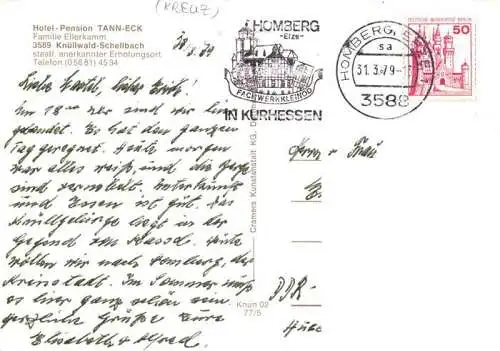 (KREUZ)
Hotel-Pension TANN-ECK
Familie Ellerkamm
3589 Knüllwald-Schellbach
staatl. anerkannter Erholungsort
Telefon (05681) 4534
30.3.79
HOMBERG
-Efze-
FACHWERKLEINOD
IN KURHESSEN
HOMBERG, EFZE 1
sa
31.3.79-
3588
DEUTSCHE BUNDESPOST BERLIN
50
Liebe Gretel, lieber Erich!
Um 18 Uhr sind wir hier
gelandet. Es hat den ganzen
Tag geregnet. Heute morgen
war alles weiß, und die Berge
sind vernebelt. Unterkunft
und Essen ist gut. Das
Knüllgebirge liegt in der
Gegend von Kassel. Heute
wollen wir nach Homburg, der
Kreisstadt. Im Sommer muß
es hier ganz schön sein.
Herzliche Grüße Eure
Elisabeth + Alfred
Cramers Kunstanstalt KG, D
Knün 02
77/5
Herrn u. Frau
E
DDR-